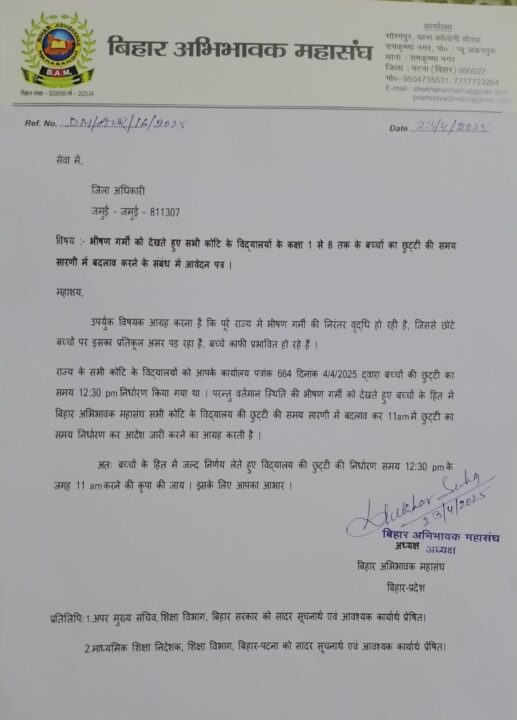 बिहार अभिभावक महासंघ
B.A.M.
कार्यालय
सोरमपुर, थाना कॉलोनी चौराहा
रामकृष्णा नगर, पो० : न्यू जकनपुरा
थाना : रामकृष्णा नगर
जिला : पटना (बिहार) 800027
मो०-9504735531, 7717723264
Ref. No. DM/AVR/16/2025
Date 23/4/2025
सेवा में,
जिला अधिकारी
जमुई - जमुई - 811307
विषय :- भीषण गर्मी को देखते हुए सभी कोटि के विद्यालयों के कक्षा 1 से 8 तक के बच्चों का छुट्टी की समय
सारणी में बदलाव करने के संबंध में आवेदन पत्र ।
महाशय,
उपर्युक विषयक आग्रह करना है कि पूरे राज्य में भीषण गर्मी की निरंतर वृद्धि हो रही है, जिससे छोटे
बच्चों पर इसका प्रतिकूल असर पड रहा है, बच्चे काफी प्रभावित हो रहे हैं ।
राज्य के सभी कोटि के विद्यालयों को आपके कार्यालय पत्रांक 664 दिनांक 4/4/2025 द्वारा बच्चों की छुट्टी का
समय 12:30 pm निर्धारण किया गया था । परन्तु वर्तमान स्थिति की भीषण गर्मी को देखते हुए बच्चों के हित में
बिहार अभिभावक महासंघ सभी कोटि के विद्यालय की छुट्टी की समय सारणी में बदलाव कर 11am में छुट्टी का
समय निर्धारण कर आदेश जारी करने का आग्रह करती है ।
अतः बच्चों के हित में जल्द निर्णय लेते हुए विद्यालय की छुट्टी की निर्धारण समय 12:30 pm के
जगह 11 am करने की कृपा की जाय । इसके लिए आपका आभार ।
23/4/2025
बिहार अभिभावक महासंघ
अध्यक्ष अध्यक्ष
बिहार अभिभावक महासंघ
बिहार-प्रदेश
प्रतिलिपि: 1.अपर मुख्य सचिव, शिक्षा विभाग, बिहार सरकार को सादर सूचनार्थ एवं आवश्यक कार्यार्थ प्रेषित।
2.माध्यमिक शिक्षा निदेशक, शिक्षा विभाग, बिहार-पटना को सादर सूचनार्थ एवं आवश्यक कार्यार्थ प्रेषित।